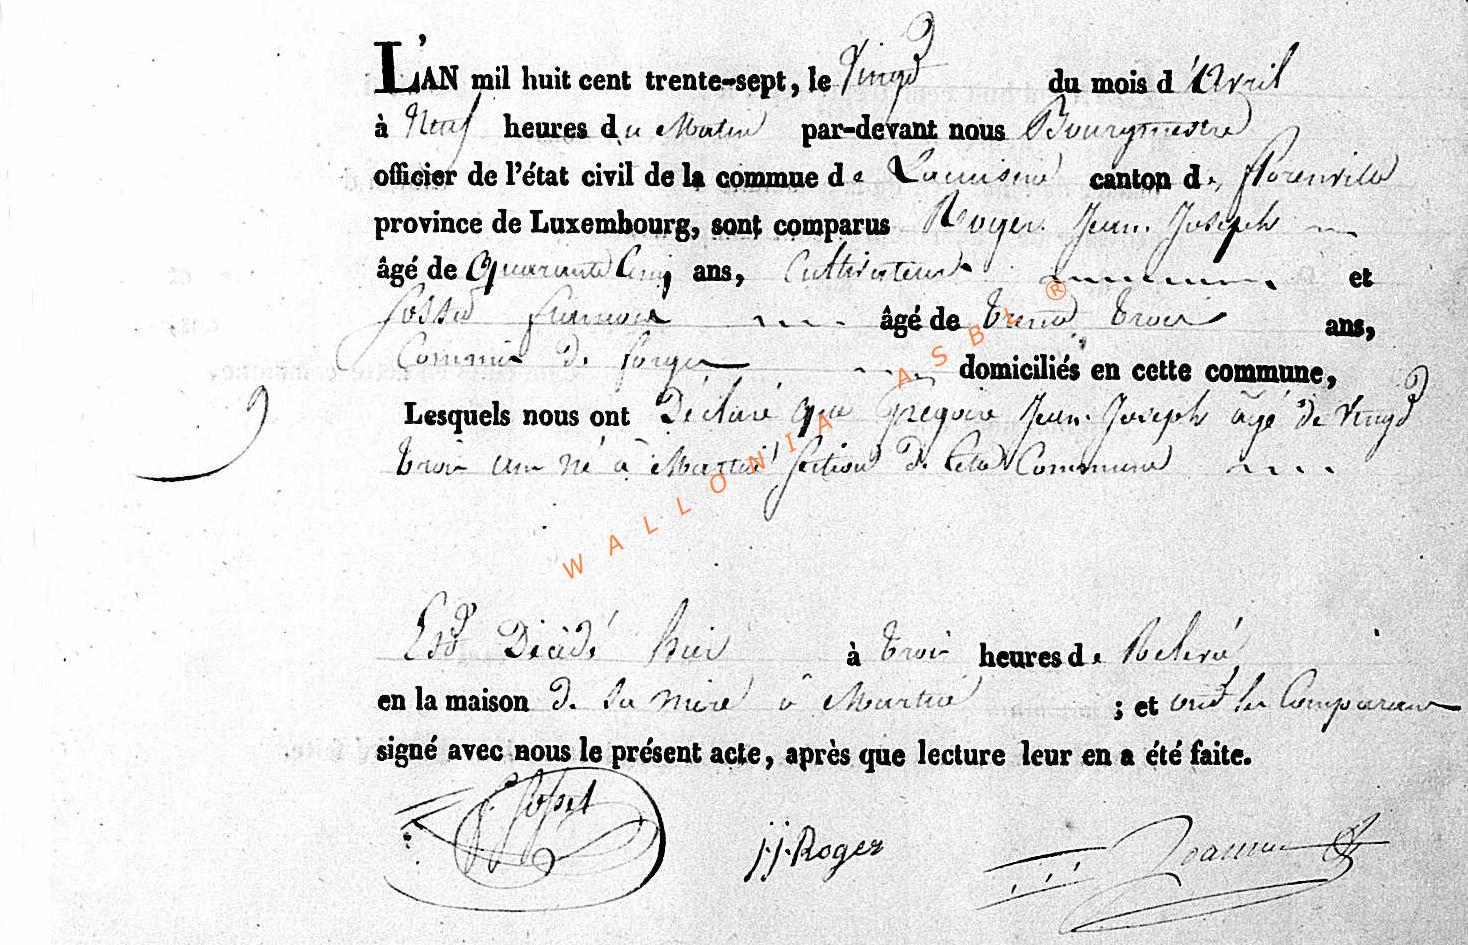 L'AN mil huit cent trente-sept, le Vingt du mois d'Avril
à Neuf heures du Matin par-devant nous Bourgmestre
officier de l'état civil de la commue de Lacuisine canton de florenville
province de Luxembourg, sont comparus Roger Jean Joseph
âgé de Quarante Cinq ans, Cultivateur et
françois âgé de trente trois ans,
Commis de forges domiciliés en cette commune,
Lesquels nous ont Déclaré que Gregoire Jean Joseph âgé de Vingt
trois ans né à Martué section de Cette Commune
Est Décédé hier à trois heures de Relevé
en la maison de sa mère à Martué ; et ont les Comparans
signé avec nous le présent acte, après que lecture leur en a été faite.
J.J. Roger
WALLONIA ASBL ®